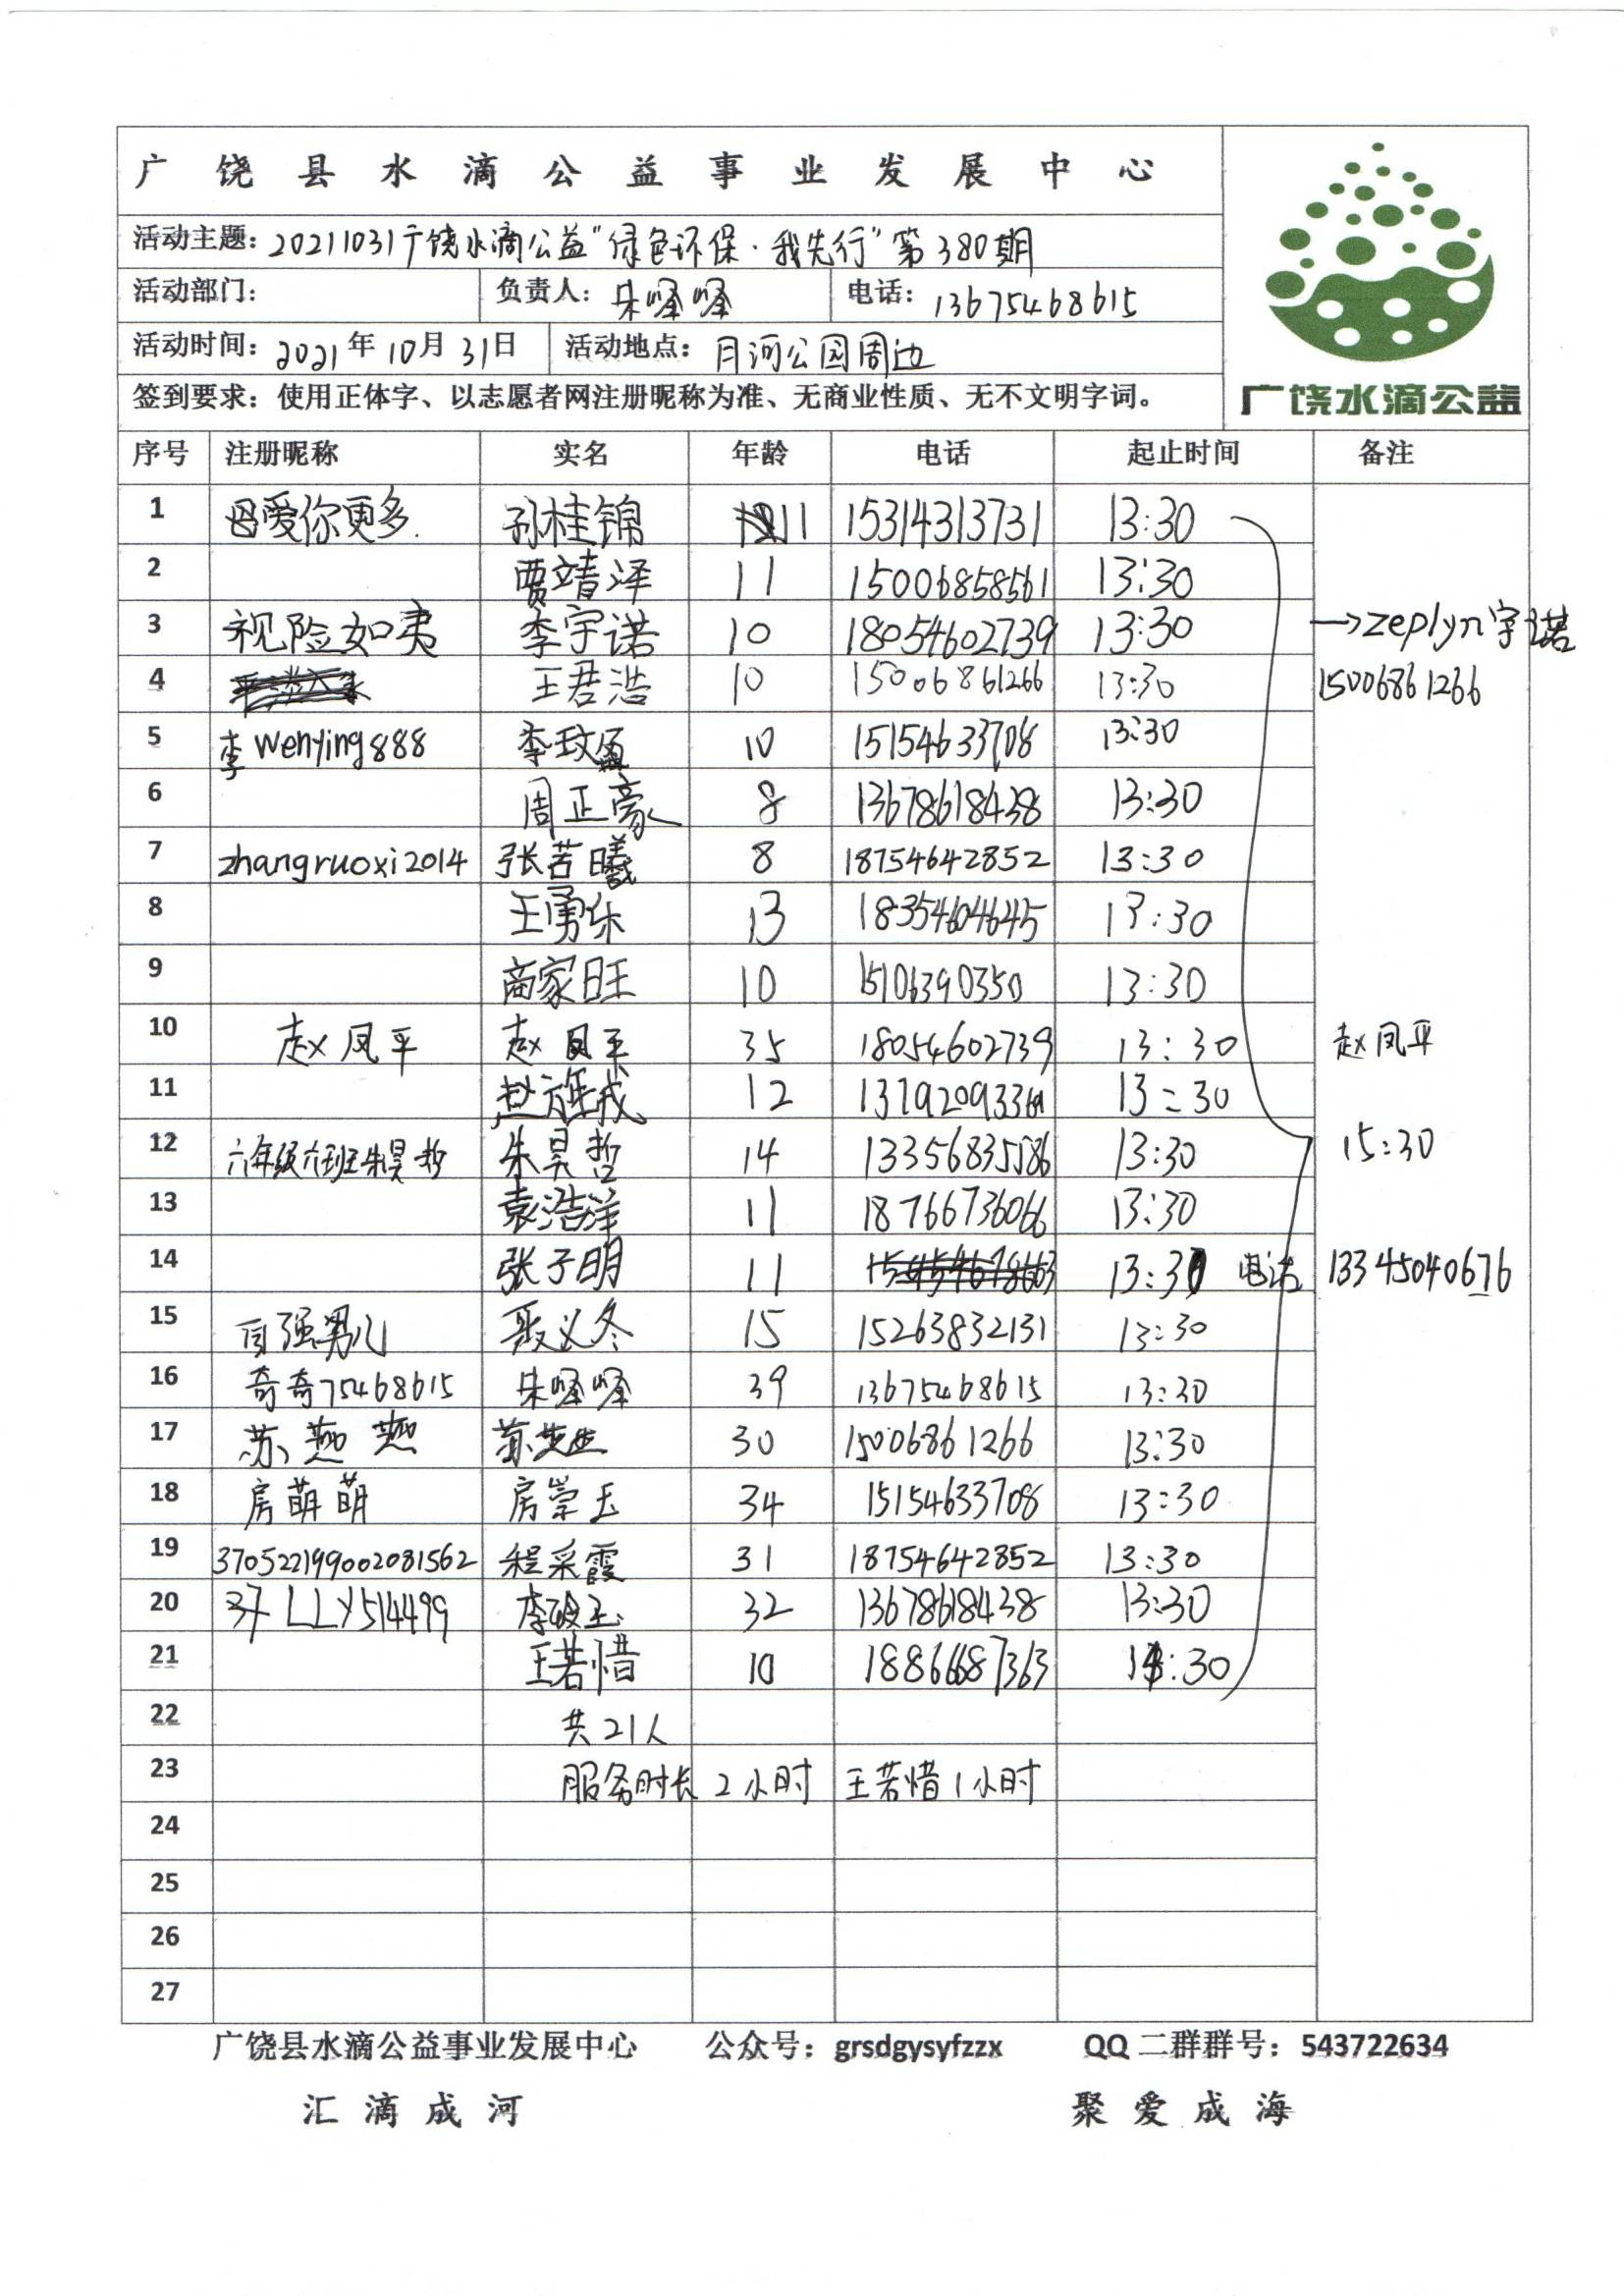 广饶县水滴公益事业发展中心
活动主题：20211031广饶水滴公益"绿色环保·我先行"第380期
活动部门： 负责人：朱峄峄 电话：13675468615
活动时间：2021年10月31日 活动地点：月河公园周边
签到要求：使用正体字、以志愿者网注册昵称为准、无商业性质、无不文明字词。
广饶水滴公益
序号 注册昵称 实名 年龄 电话 起止时间 备注
1 母爱你更多. 孙桂锦 11 15314313731 13:30
2 贾靖泽 11 15006858561 13:30
3 视险如夷 李宇诺 10 18054602739 13:30 →zeplyn宇诺
4 王君浩 10 15006861266 13:30 15006861266
5 李wenying888 李玟盈 10 15154633708 13:30
6 周正豪 8 13678618438 13:30
7 zhangruoxi2014 张若曦 8 18754642852 13:30
8 王勇乐 13 18354604645 13:30
9 商家旺 10 15106390350 13:30
10 赵凤平 赵凤平 35 18054602739 13:30 赵凤平
11 12 13:30
12 六年级六班朱昊哲 朱昊哲 14 13356835586 13:30 15:30
13 袁浩洋 11 18766736066 13:30
14 张子明 11 13:30 电话 13345040676
15 自强男儿 聂义冬 15 15263832131 13:30
16 奇奇75468615 朱峄峄 39 13675468615 13:30
17 苏燕燕 苏燕燕 30 15006861266 13:30
18 房萌萌 房崇玉 34 15154633708 13:30
19 370522199002081562 程采霞 31 18754642852 13:30
20 LLY514499 32 13678618438 13:30
21 王若惜 10 18866687363 14:30
22 共21人
23 服务时长2小时 王若惜1小时
24
25
26
27
广饶县水滴公益事业发展中心 公众号：grsdgysyfzzx QQ二群群号：543722634
汇滴成河 聚爱成海